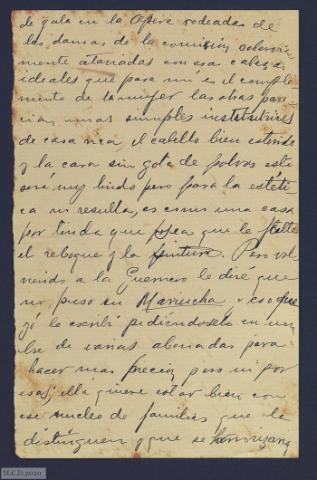 de gala en la Opera rodeadas de
las damas de la comisión soberana
mente ataviadas con esas cabezas
ideales que para mi es el comple
mento de la mujer las otras pare
cian unas simples institutrices
de casa rica, el cabello bien estirado
y la cara sin gota de polvos esto
será muy lindo pero para la esteti
ca no resulta, es como una casa
por linda que sea que le falte
el reboque y la pintura. Pero vol
viendo a la Guerrero le diré que
no puso en Mariucha, y eso que
yó le escribí pidiendoselo en nom
bre de varias abonadas para
hacer mas presión, pero ni por
esas; ella quiere estar bien con
ese nucleo de familias que la
distinguen y que se horrorizan
M.C.D. 2020